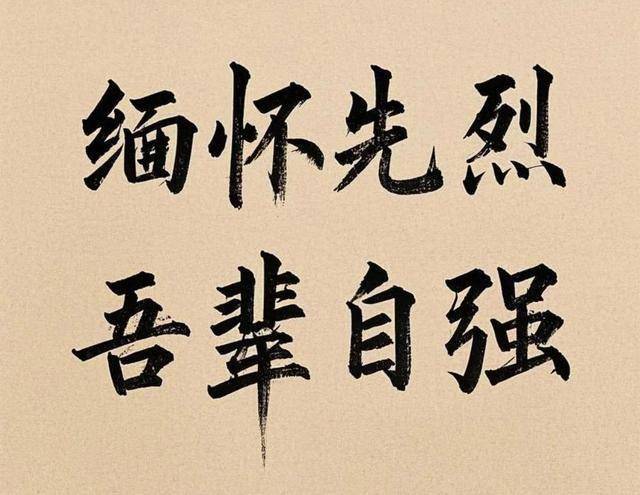 缅怀先烈
吾辈自强